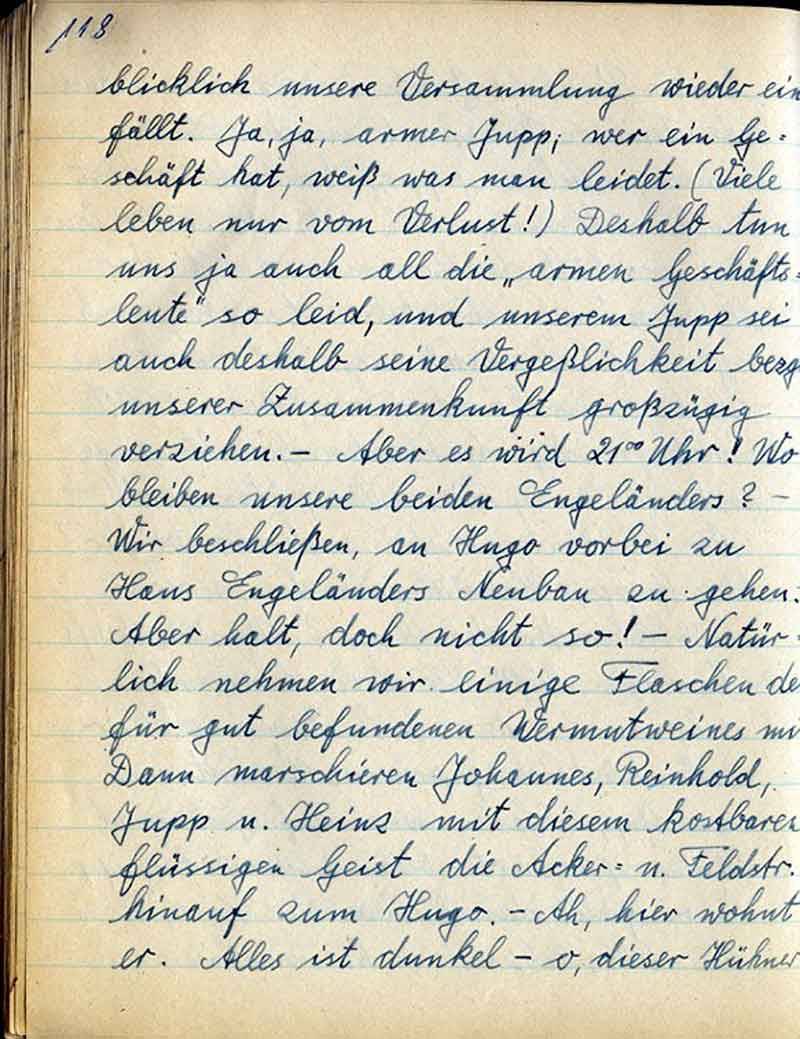 118
blicklich unsere Versammlung wieder ein
fällt. Ja, ja, armer Jupp; wer ein Ge=
schäft hat, weiß was man leidet. (Viele
leben nur vom Verlust!) Deshalb tun
uns ja auch all die „armen Geschäfts=
leute" so leid, und unserem Jupp sei
auch deshalb seine Vergeßlichkeit bezg
unserer Zusammenkunft großzügig
verziehen. – Aber es wird 21⁰⁰ Uhr! Wo
bleiben unsere beiden Engeländers? –
Wir beschließen, an Hugo vorbei zu
Hans Engeländers Neubau zu gehen.
Aber halt, doch nicht so! – Natür=
lich nehmen wir einige Flaschen de
für gut befundenen Wermutweines mi
Dann marschieren Johannes, Reinhold,
Jupp u. Heinz mit diesem kostbaren
flüssigen Geist die Acker= u. Feldstr.
hinauf zum Hugo. – Ah, hier wohnt
er. Alles ist dunkel – o, dieser Hühner